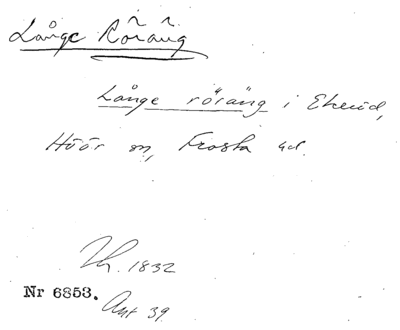 Långe Röräng
Långe röräng i Ekeröd,
Höör sn, Frosta hd.
1832
Nr 6853. Ant 39